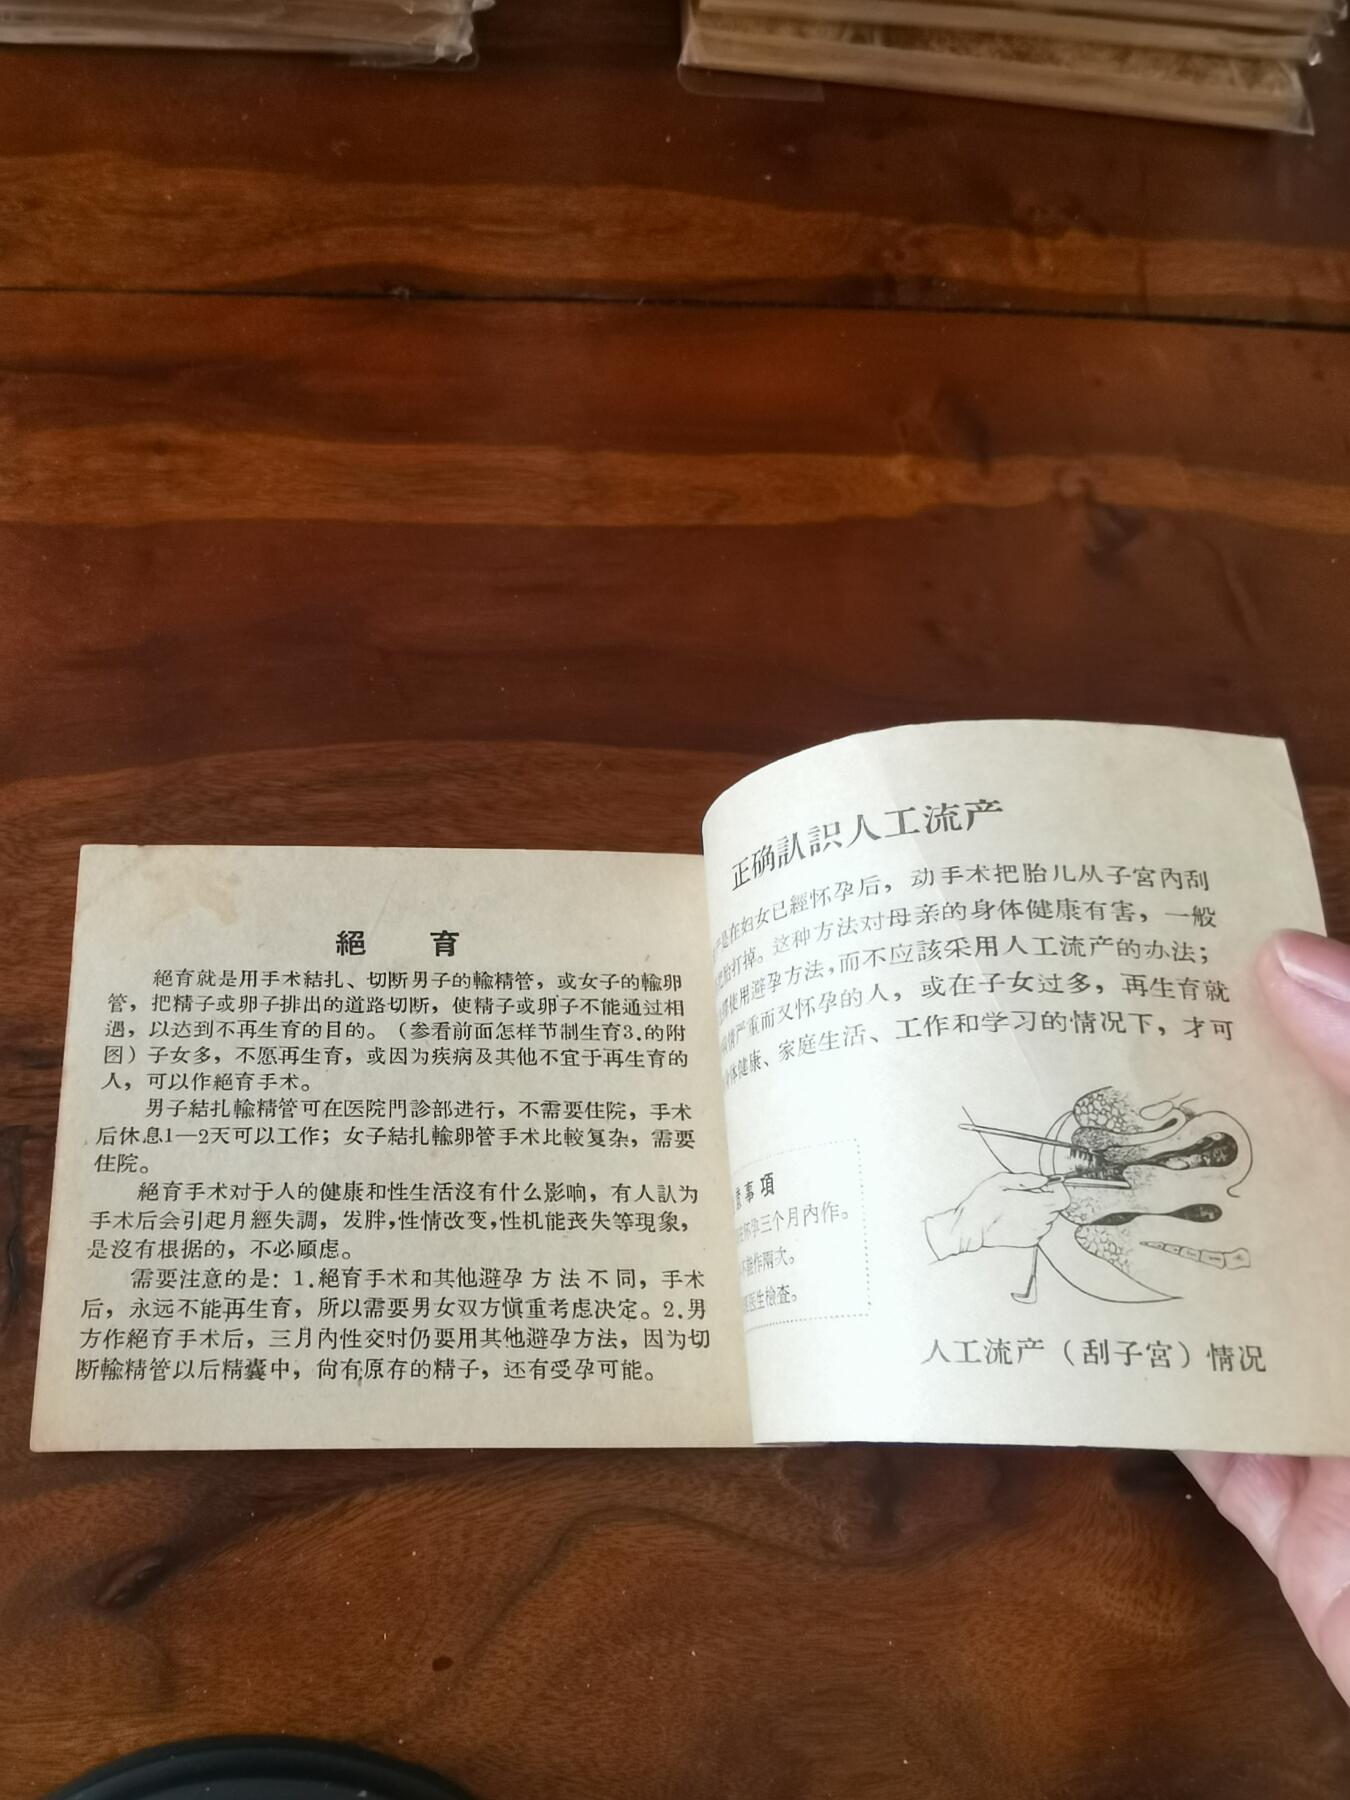 絕 育
絕育就是用手术結扎、切断男子的輸精管，或女子的輸卵
管，把精子或卵子排出的道路切断，使精子或卵子不能通过相
遇，以达到不再生育的目的。（参看前面怎样节制生育3.的附
图）子女多，不愿再生育，或因为疾病及其他不宜于再生育的
人，可以作絕育手术。
男子結扎輸精管可在医院門診部进行，不需要住院，手术
后休息1—2天可以工作；女子結扎輸卵管手术比較复杂，需要
住院。
絕育手术对于人的健康和性生活沒有什么影响，有人訟为
手术后会引起月經失調，发胖，性情改变，性机能丧失等現象，
是沒有根据的，不必顾虑。
需要注意的是：1.絕育手术和其他避孕方法不同，手术
后，永远不能再生育，所以需要男女双方愼重考虑决定。2.男
方作絕育手术后，三月內性交时仍要用其他避孕方法，因为切
断輸精管以后精囊中，尙有原存的精子，还有受孕可能。
正确訟識人工流产
是在妇女已經怀孕后，动手术把胎儿从子宮內刮
胎打掉。这种方法对母亲的身体健康有害，一般
使用避孕方法，而不应該采用人工流产的办法；
情严重而又怀孕的人，或在子女过多，再生育就
体健康、家庭生活、工作和学习的情况下，才可
事項
怀孕三个月內作。
作兩次。
医生檢查。
人工流产（刮子宮）情况